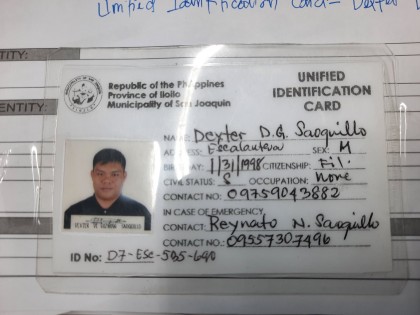 Unified Identification Card - Dexter
TITY:
ENTITY:
Republic of the Philippines
Province of Iloilo
Municipality of San Joaquin
UNIFIED
IDENTIFICATION
CARD
NAME: Dexter D.G. Saoquillo
ADDRESS: Escalantera SEX: M
BIRTHDAY: 1/31/1998 CITIZENSHIP: Fil.
CIVIL STATUS: S OCCUPATION: None
CONTACT NO: 09759043882
IN CASE OF EMERGENCY
CONTACT: Reynato N. Saoquillo
CONTACT NO.: 09557307496
ID No: D7-ESC-595-640